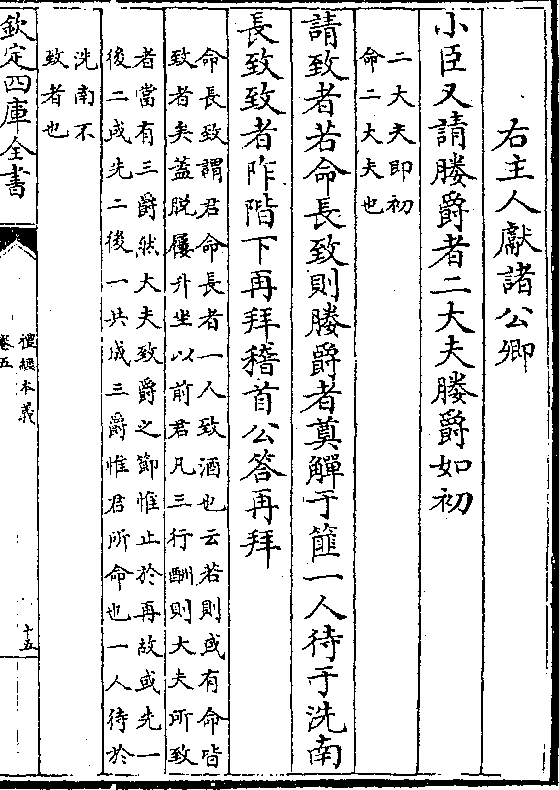 右主人獻諸公卿
小臣又請媵爵者二大夫媵爵如初
二大夫即初
命二大夫也
請致者若命長致則媵爵者奠觶于篚一人待于洗南
長致致者阼階下再拜稽首公答再拜
命長致謂君命長者一人致酒也云若則或有命皆
致者矣葢脫屨升坐以前君凡三行酬則大夫所致
者當有三爵然大夫致爵之節惟止於再故或先一
後二或先二後一共成三爵惟君所命也一人待於
洗南不
致者也
欽定四庫全書
禮經本義
卷五
十五